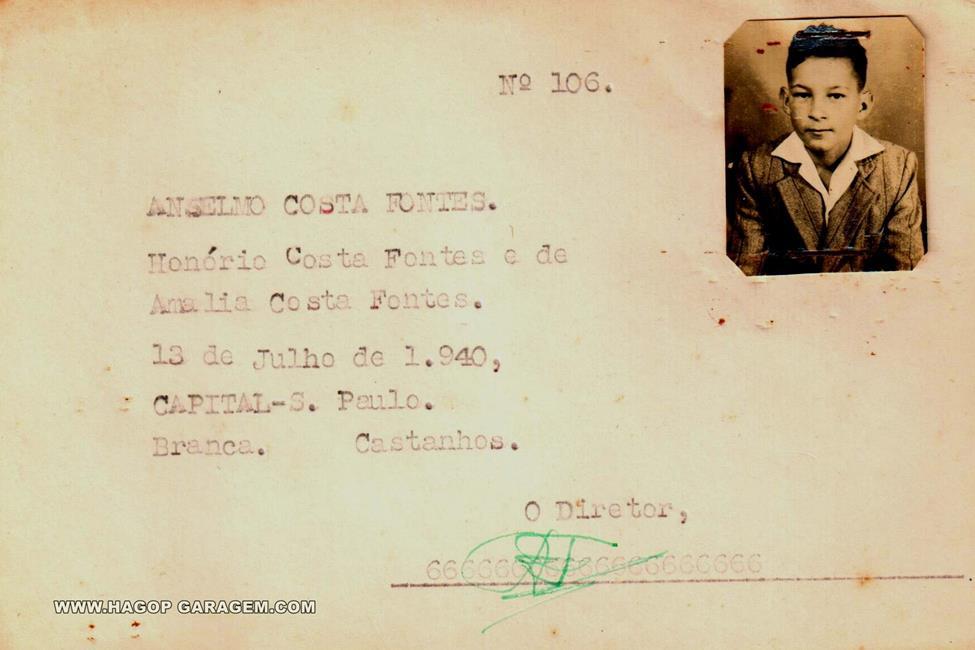 Nº 106.
ANSELMO COSTA FONTES.
Honório Costa Fontes e de
Amalia Costa Fontes.
13 de Julho de 1.940,
CAPITAL-S. Paulo.
Branca. Castanhos.
O Diretor,
WWW.HAGOP GARAGEM.COM